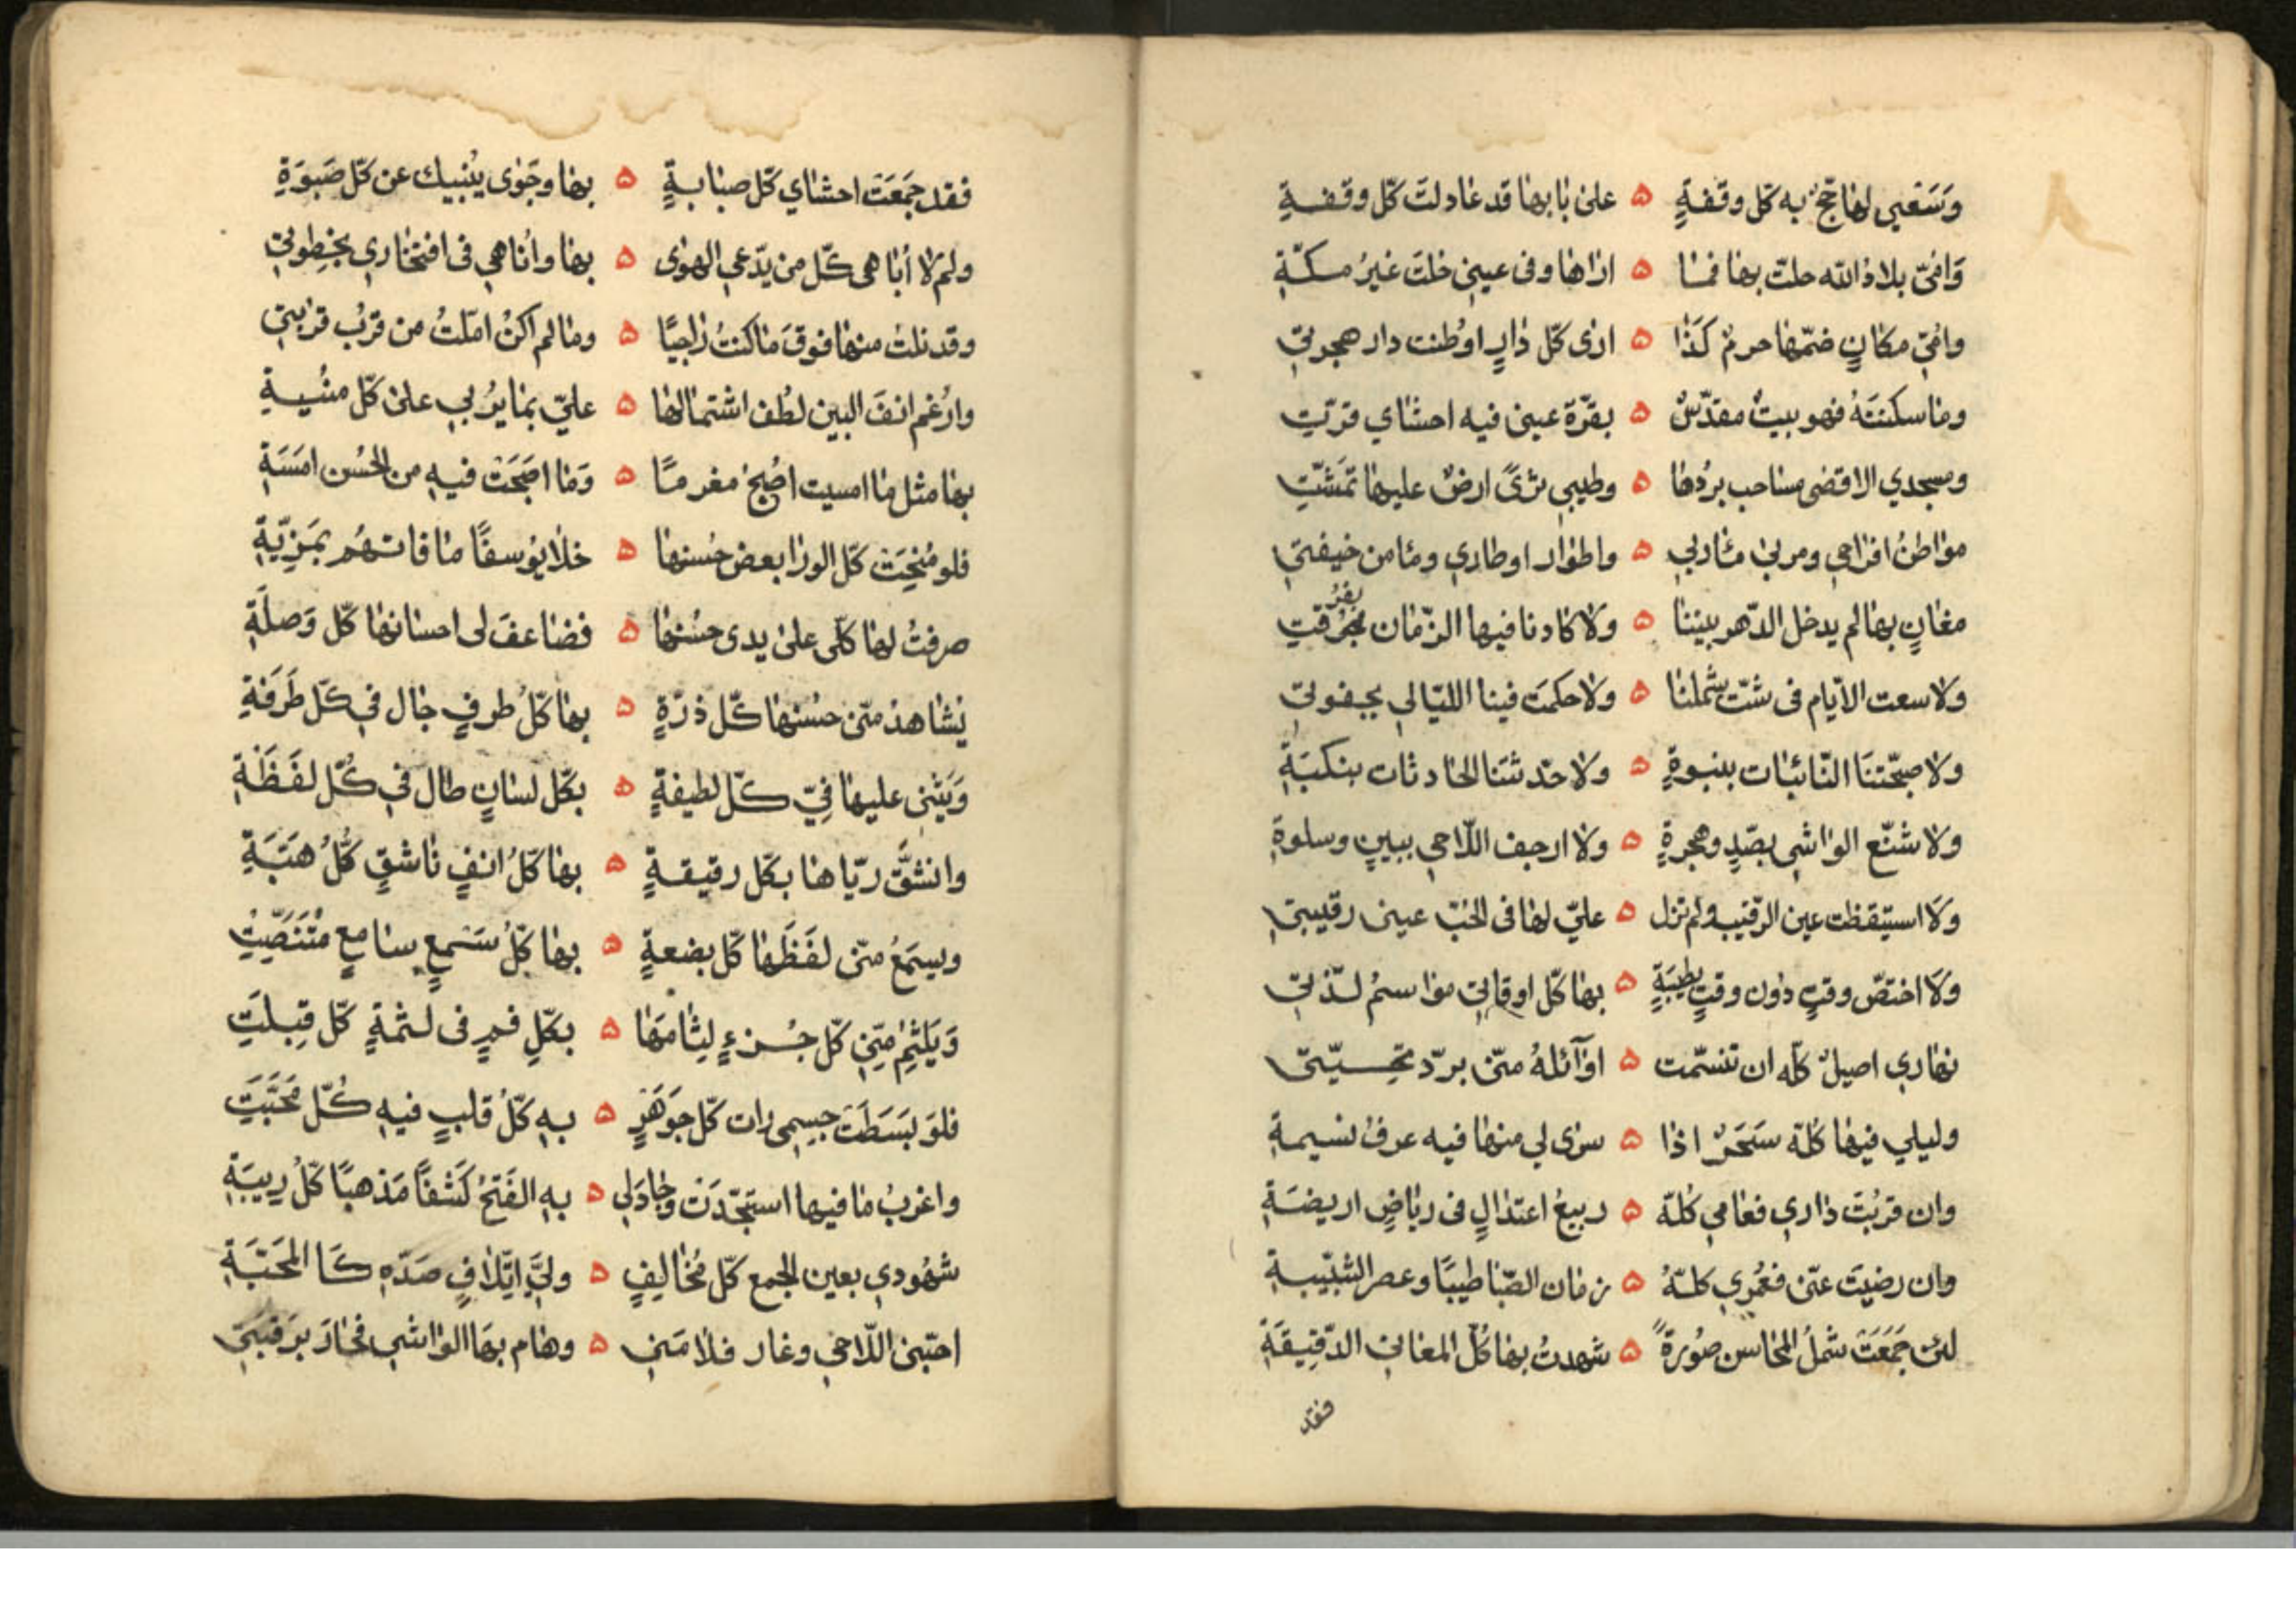 وَسَعْيي لها حَجّ به كلّ وقفةٍ ۵ على بابها قد عادلت كلّ وقفةِ
وَايّ بلاد الله حلت بها فما ۵ اراها وفى عيني حلت غيرُ مكّةِ
وايّ مكانٍ ضمّها حرمٌ كَذا ۵ ارى كلّ دارٍ اوطنت دار هجرتي
وما سكنتهُ فهو بيتٌ مقدّسٌ ۵ بقرّة عيني فيه احشاي قرّتِ
ومسجدي الاقصى مساحب بردها ۵ وطيبي ثرىً ارضٌ عليها تمَشّتِ
مواطنُ افراحي ومربى مآربي ۵ واطوار اوطاري ومأمن خيفتي
مغانٍ بها لم يدخل الدّهر بيننا ۵ ولا كادنا فيها الزّمان بفرقتِ
ولا سعت الايّام فى شتّ شملنا ۵ ولا حكمَت فينا الليّالي بجفوتي
ولا صبّحتنَا النّائبات بنبوةٍ ۵ ولا حدّثتنا الحادثات بنكبَةِ
ولا شنّع الواشي بصّدٍ وهجرةٍ ۵ ولا ارجف اللّاحي ببينٍ وسلوةِ
ولا استيقظت عين الرّقيب ولم تزل ۵ عليّ لها فى الحبّ عيني رقيبتي
ولا اختصّ وقتٍ دون وقتٍ بطيبَةٍ ۵ بها كلّ اوقاتي مواسمُ لذّتي
نهاري اصيلٌ كلّه ان تنسّمت ۵ اوآئلهُ منّى بردّ تحيّتي
وليلي فيها كلّه سَحَرٌ اذا ۵ سرى لي منها فيه عرفُ نسيمةِ
وان قربُتَ داري فعامي كلّهُ ۵ ربيعُ اعتدالٍ فى رياضٍ اريضَةِ
وان رضيتَ عنّى فعُمُري كلّهُ ۵ زمان الصّبا طيبًا وعصر الشّبيبةِ
لئن جَمَعَتْ شملُ المحاسن صُورةً ۵ شهدتُ بها كلّ المعاني الدّقِيقَةِ
فقد
فقد جَمَعَتْ احشاي كلّ صبابةٍ ۵ بها وجَوٰى ينُبيك عن كلّ صَبوَةِ
ولم لا أباهى كلّ من يدّعي الهوٰى ۵ بها واُناهي فى افتخاري بخِطوتي
وقد نلتُ منها فوقَ ما كنتُ راجيًا ۵ وما لم اكنُ امّلتُ من قربُ قربتي
وارغم انفَ البين لطُف اشتمالها ۵ عليّ بما يرُبي على كلّ منُيةِ
بها مثل ما امسيت اصُبح مغرمًا ۵ وَما اصَبحَت فيهِ من الحُسن امَسَةِ
فلو مُنحِتَ كلّ الورا بعض حُسنها ۵ خلا يوُسفًا ما فاتهُم بمَزِيّةِ
صرفتُ لها كلّى على يدى حسُنها ۵ فضاعفَ لى احسانها كلّ وَصلَةِ
يُشاهدُ منّى حسُنها كلّ ذرّةٍ ۵ بها كلّ طرفٍ جال في كلّ طَرفَةِ
وَيَثنى عليها فيّ كلّ لطيفةٍ ۵ بكلّ لسانٍ طال في كُلّ لفَظَةِ
وانشَقُّ ريّاها بكلّ رقيقةٍ ۵ بها كلّ انفٍ ناشقٍ كُلّ هَبّةِ
ويسمَعُ منّى لفَظَها كلّ بضعةٍ ۵ بها كلّ سَمعٍ سامعٍ مُتَنَصِّتِ
وَيَلثِمُ منّي كلّ جُزءٍ لِثامَها ۵ بكلّ فمٍ فى لثمةٍ كلّ قِبلَتِ
فلَو بَسَطَتْ جسِمى رات كلّ جَوهَرٍ ۵ بهِ كلّ قلبٍ فيهِ كُلّ مَحَبّتِ
واغربُ ما فيها استَجّدَتْ وجادَلي ۵ بهِ الفَتحُ كَشفًا مَذهبًا كلّ رِيبَةِ
شهُودي بعين الجمع كلّ مُخالِفٍ ۵ وليّ ايتَلافٍ صَدّهِ كَا المحَبّةِ
احبّنى اللّاحي وغار فلامَني ۵ وهام بها الواشي فجارَ برَقبتي